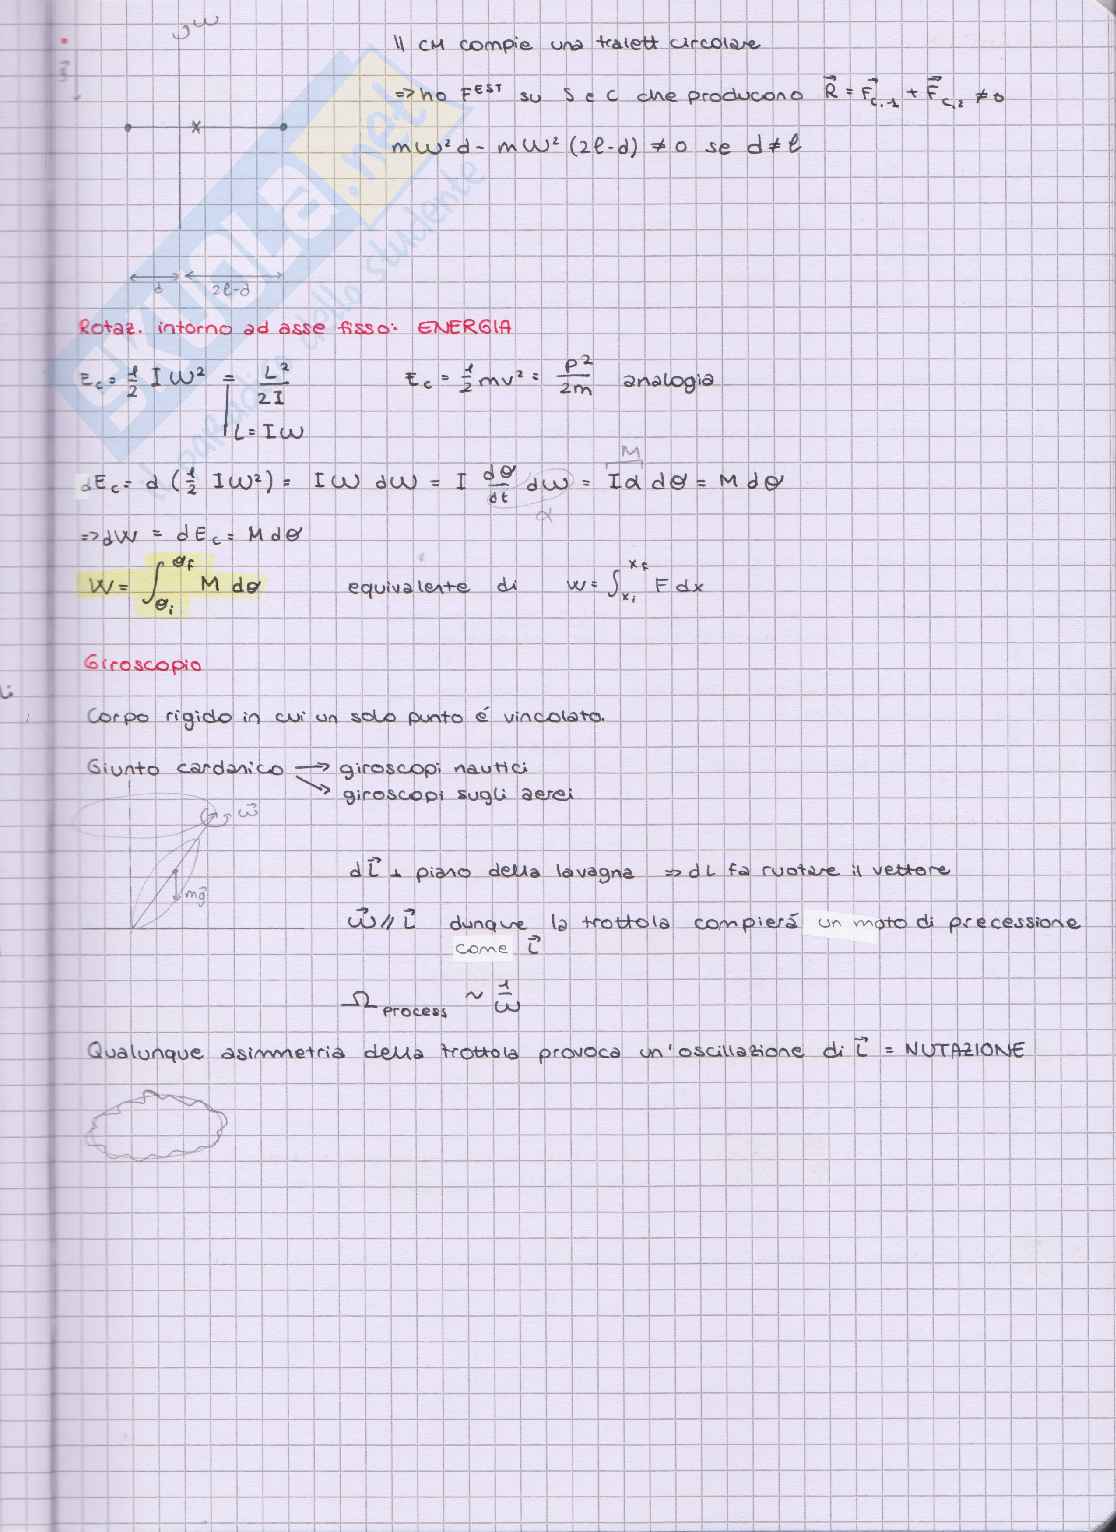 ω
Il CM compie una traiett circolare
=> ho F^EST su S e C che producono R⃗ = F⃗_c,1 + F⃗_c,2 ≠ 0
mω²d - mω²(2ℓ-d) ≠ 0 se d ≠ ℓ
d 2ℓ-d
SKUOLA.net
il paradiso dello studente
Rotaz. intorno ad asse fisso: ENERGIA
E_c = 1/2 I ω² = L²/2I E_c = 1/2 mv² = P²/2m analogia
L = Iω
M
dE_c = d (1/2 Iω²) = Iω dω = I dθ/dt dω = Iα dθ = M dθ
α
=> dW = dE_c = M dθ
W = ∫_θi^θf M dθ equivalente di W = ∫_xi^xf F dx
Giroscopio
Corpo rigido in cui un solo punto é vincolato.
Giunto cardanico → giroscopi nautici
↘ giroscopi sugli aerei
ω⃗
mg⃗
dL⃗ ⊥ piano della lavagna => dL fa ruotare il vettore
ω⃗ // L⃗ dunque la trottola compierá un moto di precessione
come L⃗
Ω process ~ 1/ω
Qualunque asimmetria della trottola provoca un'oscillazione di L⃗ = NUTAZIONE